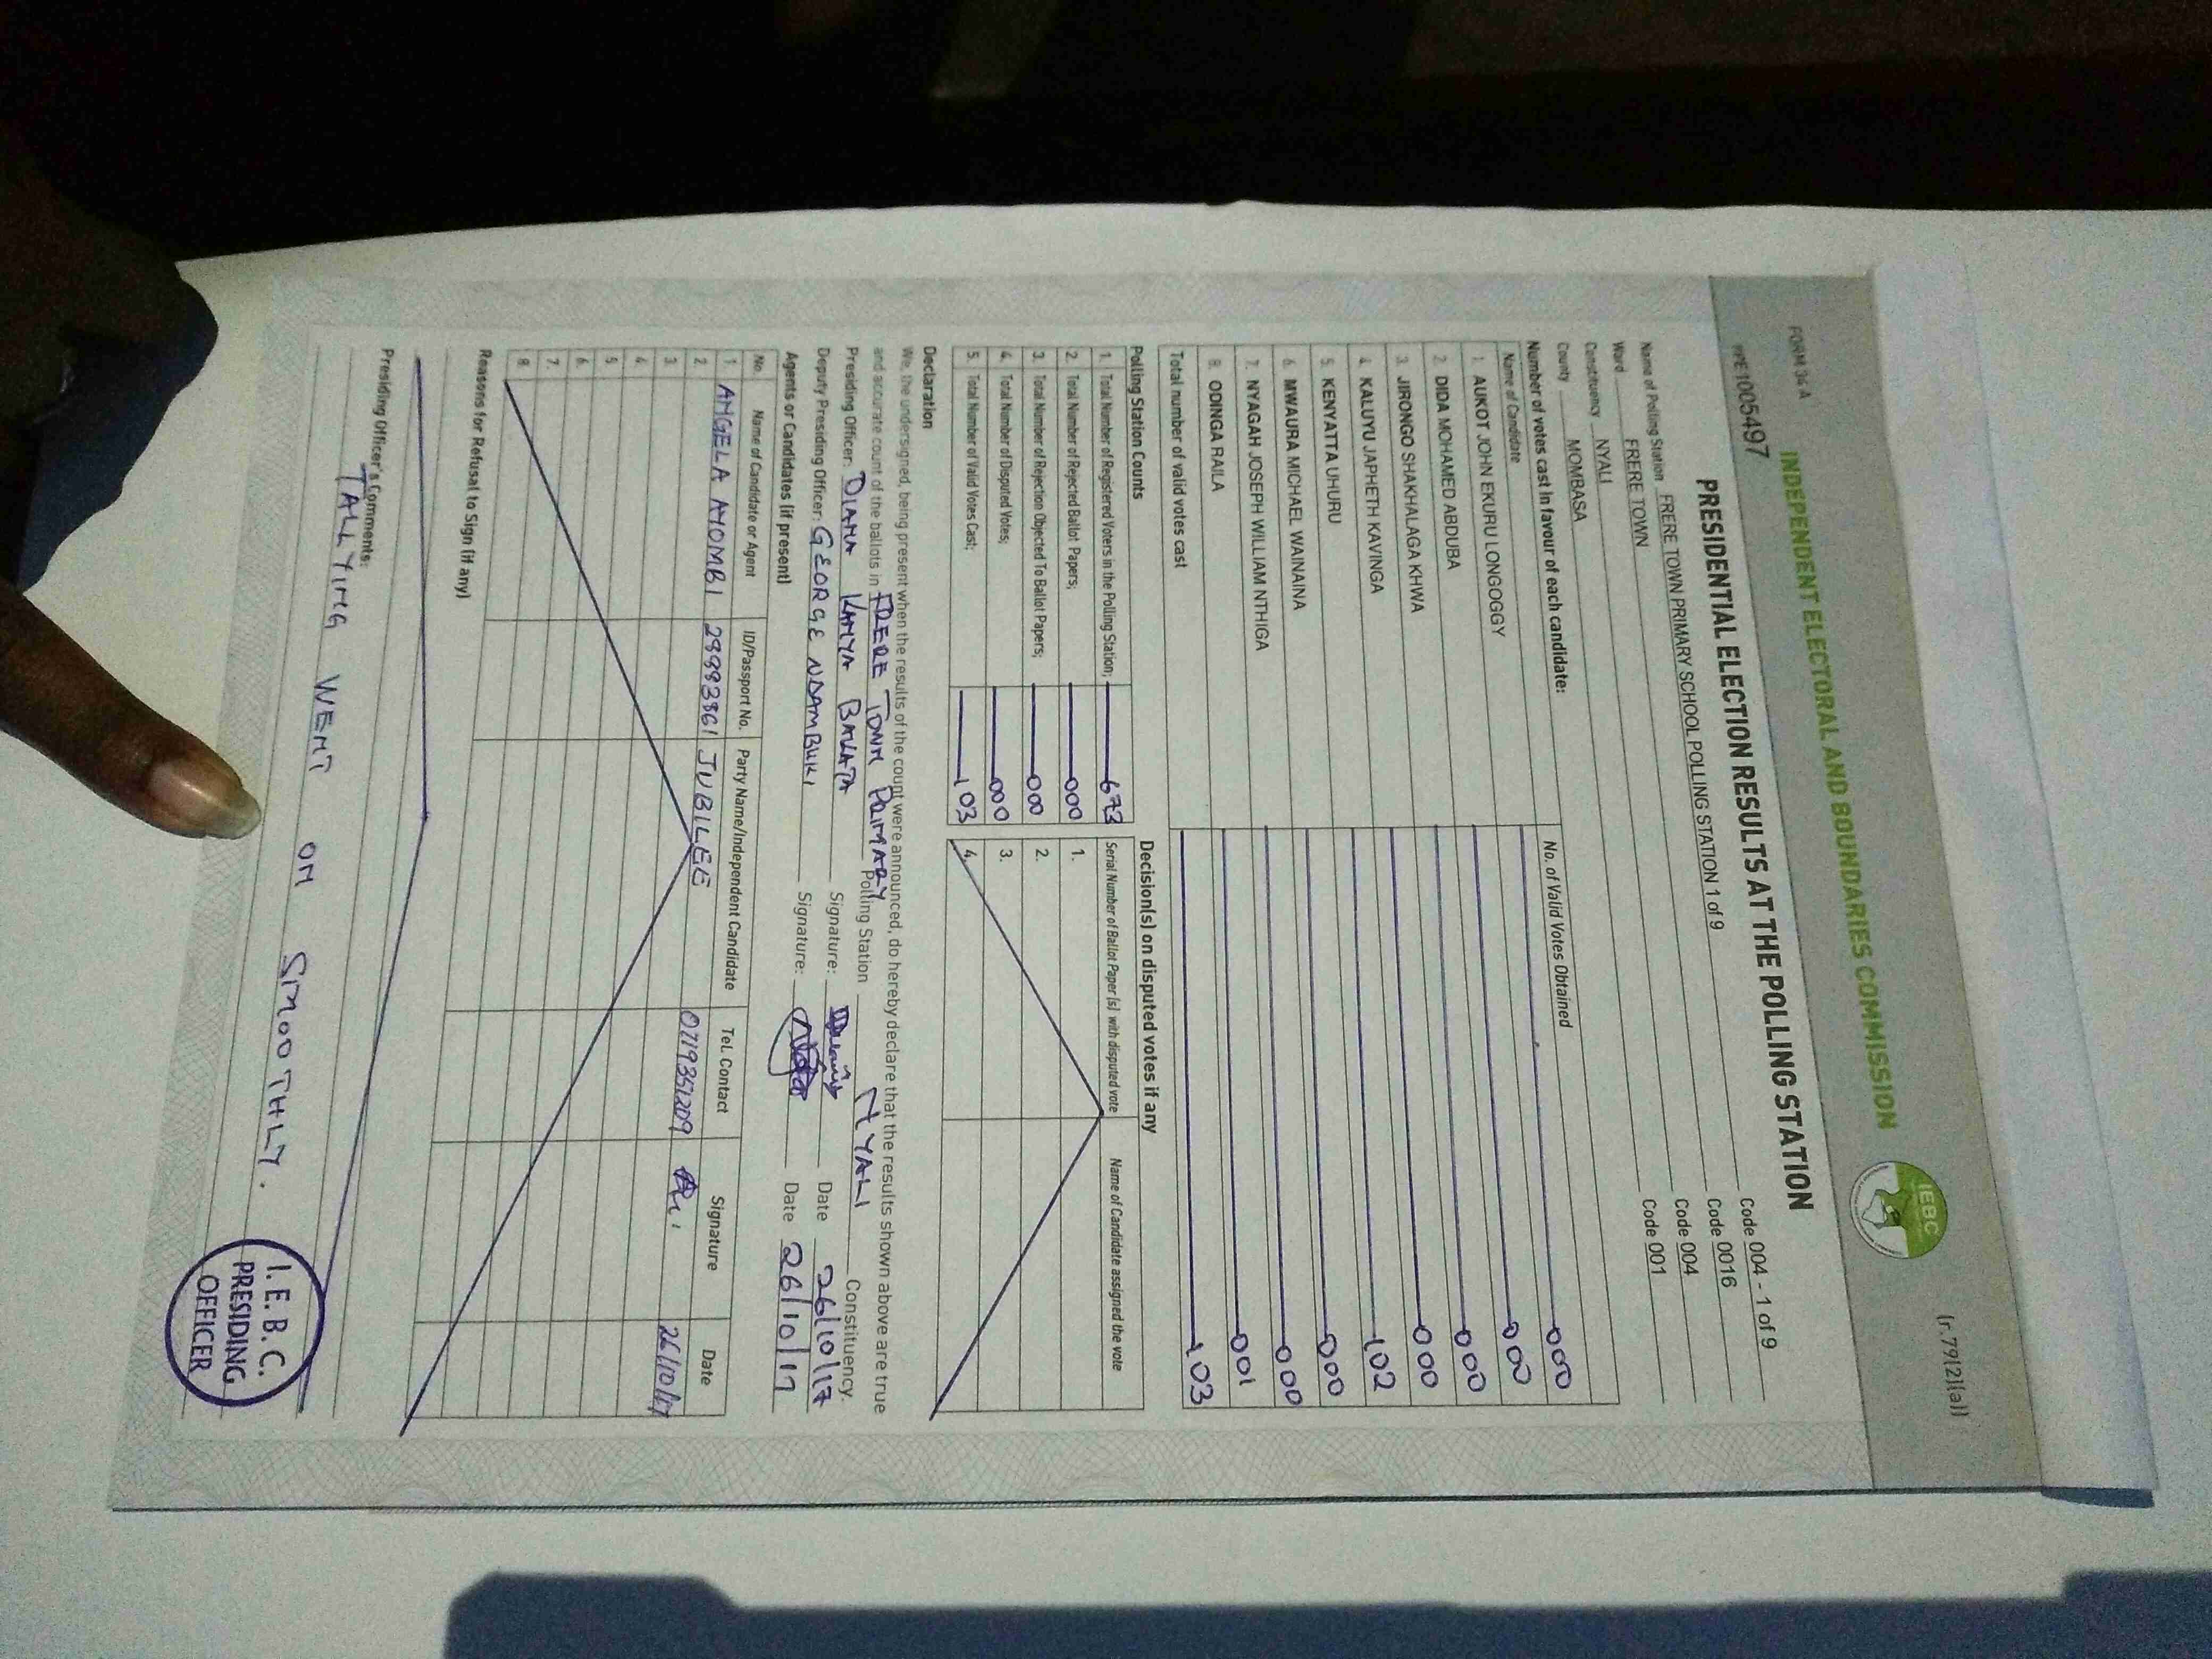 FORM 34A
(r.79(2)(a))
INDEPENDENT ELECTORAL AND BOUNDARIES COMMISSION
IEBC
PRESIDENTIAL ELECTION RESULTS AT THE POLLING STATION
PPE1005497
Name of Polling Station FRERE TOWN PRIMARY SCHOOL POLLING STATION 1 of 9 Code 004 - 1 of 9
Ward FRERE TOWN Code 0016
Constituency NYALI Code 004
County MOMBASA Code 001
Number of votes cast in favour of each candidate:
Name of Candidate No. of Valid Votes Obtained
1. AUKOT JOHN EKURU LONGOGGY 000
2. DIDA MOHAMED ABDUBA 000
3. JIRONGO SHAKHALAGA KHWA 000
4. KALUYU JAPHETH KAVINGA 000
5. KENYATTA UHURU 102
6. MWAURA MICHAEL WAINAINA 000
7. NYAGAH JOSEPH WILLIAM NTHIGA 000
8. ODINGA RAILA 001
Total number of valid votes cast 103
Polling Station Counts
1. Total Number of Registered Voters in the Polling Station; 673
2. Total Number of Rejected Ballot Papers; 000
3. Total Number of Rejection Objected To Ballot Papers; 000
4. Total Number of Disputed Votes; 000
5. Total Number of Valid Votes Cast; 103
Decision(s) on disputed votes if any
Serial Number of Ballot Paper (s) with disputed vote Name of Candidate assigned the vote
1.
2.
3.
4.
Declaration
We, the undersigned, being present when the results of the count were announced, do hereby declare that the results shown above are true
and accurate count of the ballots in FRERE TOWN PRIMARY Polling Station NYALI Constituency.
Presiding Officer: DIANA KANYA BALATA Signature: Date 26/10/17
Deputy Presiding Officer: GEORGE NDAMBUKI Signature: Date 26/10/17
Agents or Candidates (if present)
No. Name of Candidate or Agent ID/Passport No. Party Name/Independent Candidate Tel. Contact Signature Date
1 ANGELA AYOMBI 29983361 JUBILEE 0719351209 26/10/17
2.
3.
4.
5.
6.
7.
8.
Reasons for Refusal to Sign (if any)
Presiding Officer's Comments:
TALLYING WENT ON SMOOTHLY.
I.E.B.C.
PRESIDING
OFFICER